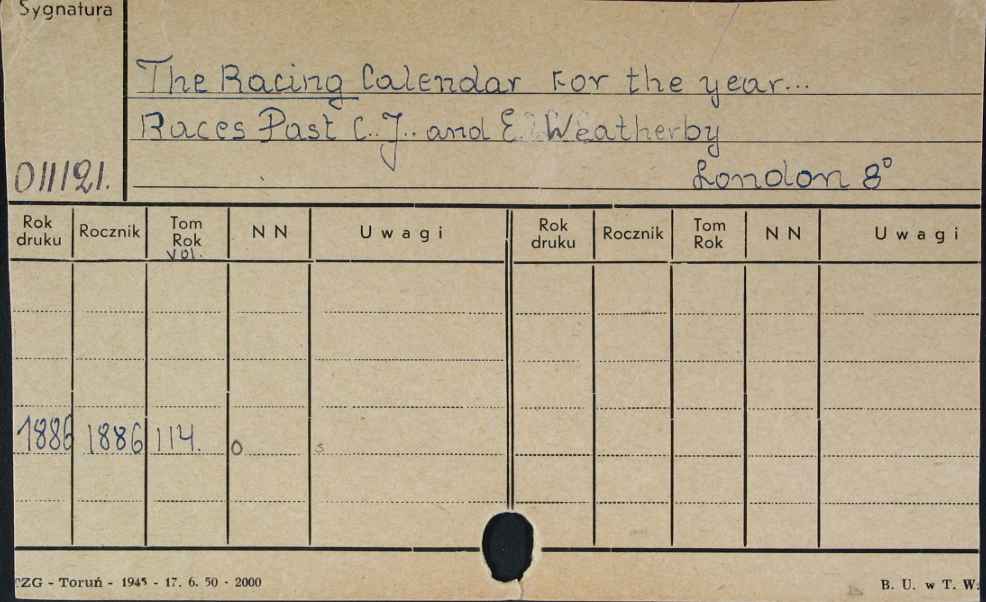 Sygnatura
The Racing Calendar For the year...
Races Past C..J.. and E. Weatherby
London 8°
011121.
Rok druku Rocznik Tom Rok vol. NN Uwagi Rok druku Rocznik Tom Rok NN Uwagi
1886 1886 114. o s
ZG - Toruń - 1945 - 17. 6. 50 - 2000 B. U. w T. W: